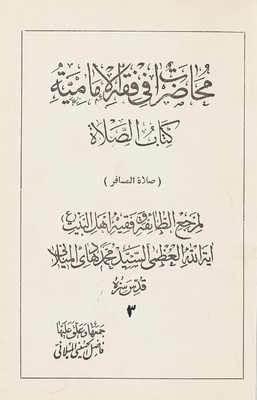 محاضرات في فقه الإمامية
كتاب الصلاة
( صلاة المسافر )
لمرجع الطائفة وفقيه أهل البيت ع
آية الله العظمى السيد محمد هادي الميلاني
قدس سره
٣
جمعها وعلق عليها
فاضل الحسيني الميلاني